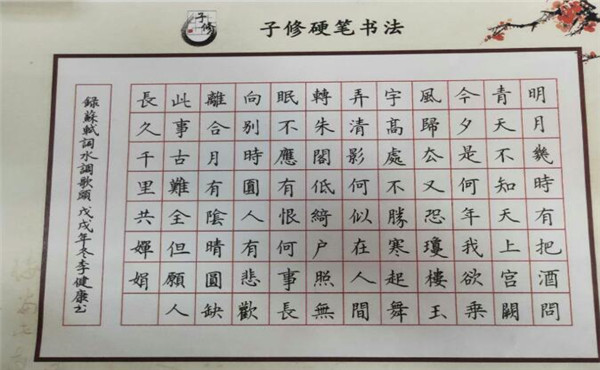 子修
子修硬笔书法
明月幾時有把酒問
青天不知天上宮闕
今夕是何年我欲乘
風歸厺又恐瓊樓玉
宇高處不勝寒起舞
弄清影何似在人間
轉朱閣低綺户照無
眠不應有恨何事長
向别時圓人有悲歡
離合月有陰晴圓缺
此事古難全但願人
長久千里共嬋娟
錄蘇軾詞水調歌頭 戊戌年冬李健康书